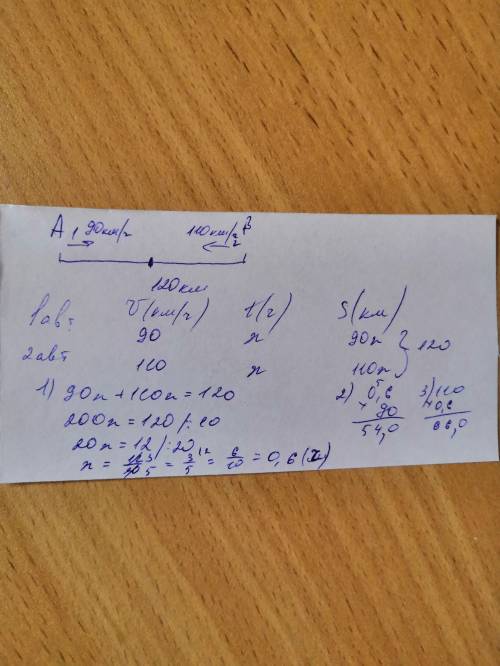 A 1 90км/ч 110км/ч 2 B
120км
V(км/ч) t(ч) S(км)
1авт 90 x 90x
2авт 110 x 110x } 120
1) 90x + 110x = 120
200x = 120 / :10
20x = 12 / :20
x = 12/20 = 3/5 = 6/10 = 0,6 (ч)
2) 0,6
× 90
54,0
3) 110
× 0,6
66,0